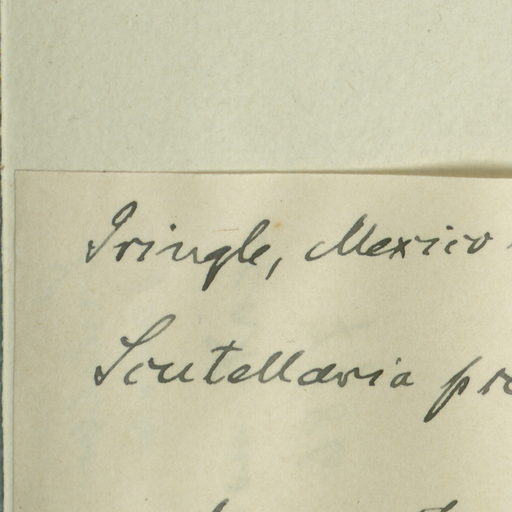 Pringle, Mexico
Scutellaria